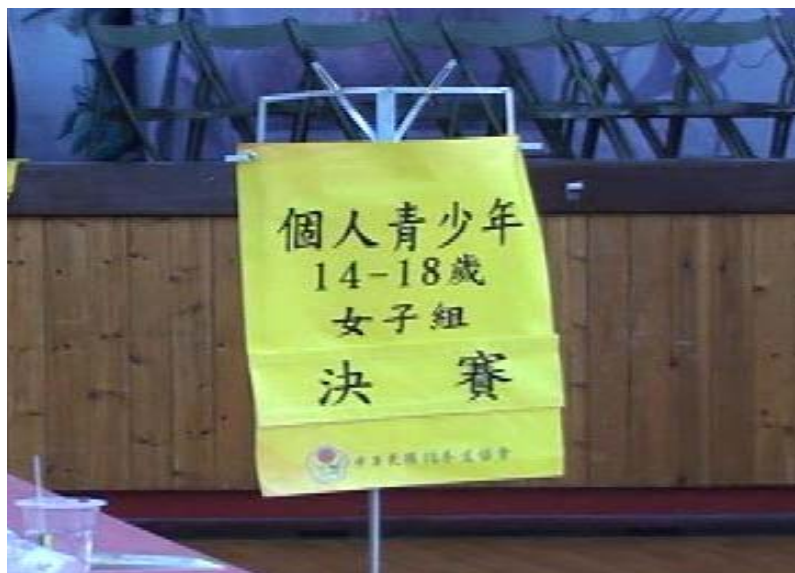 個人青少年
14-18歲
女子組
決 賽
中華民國
協會